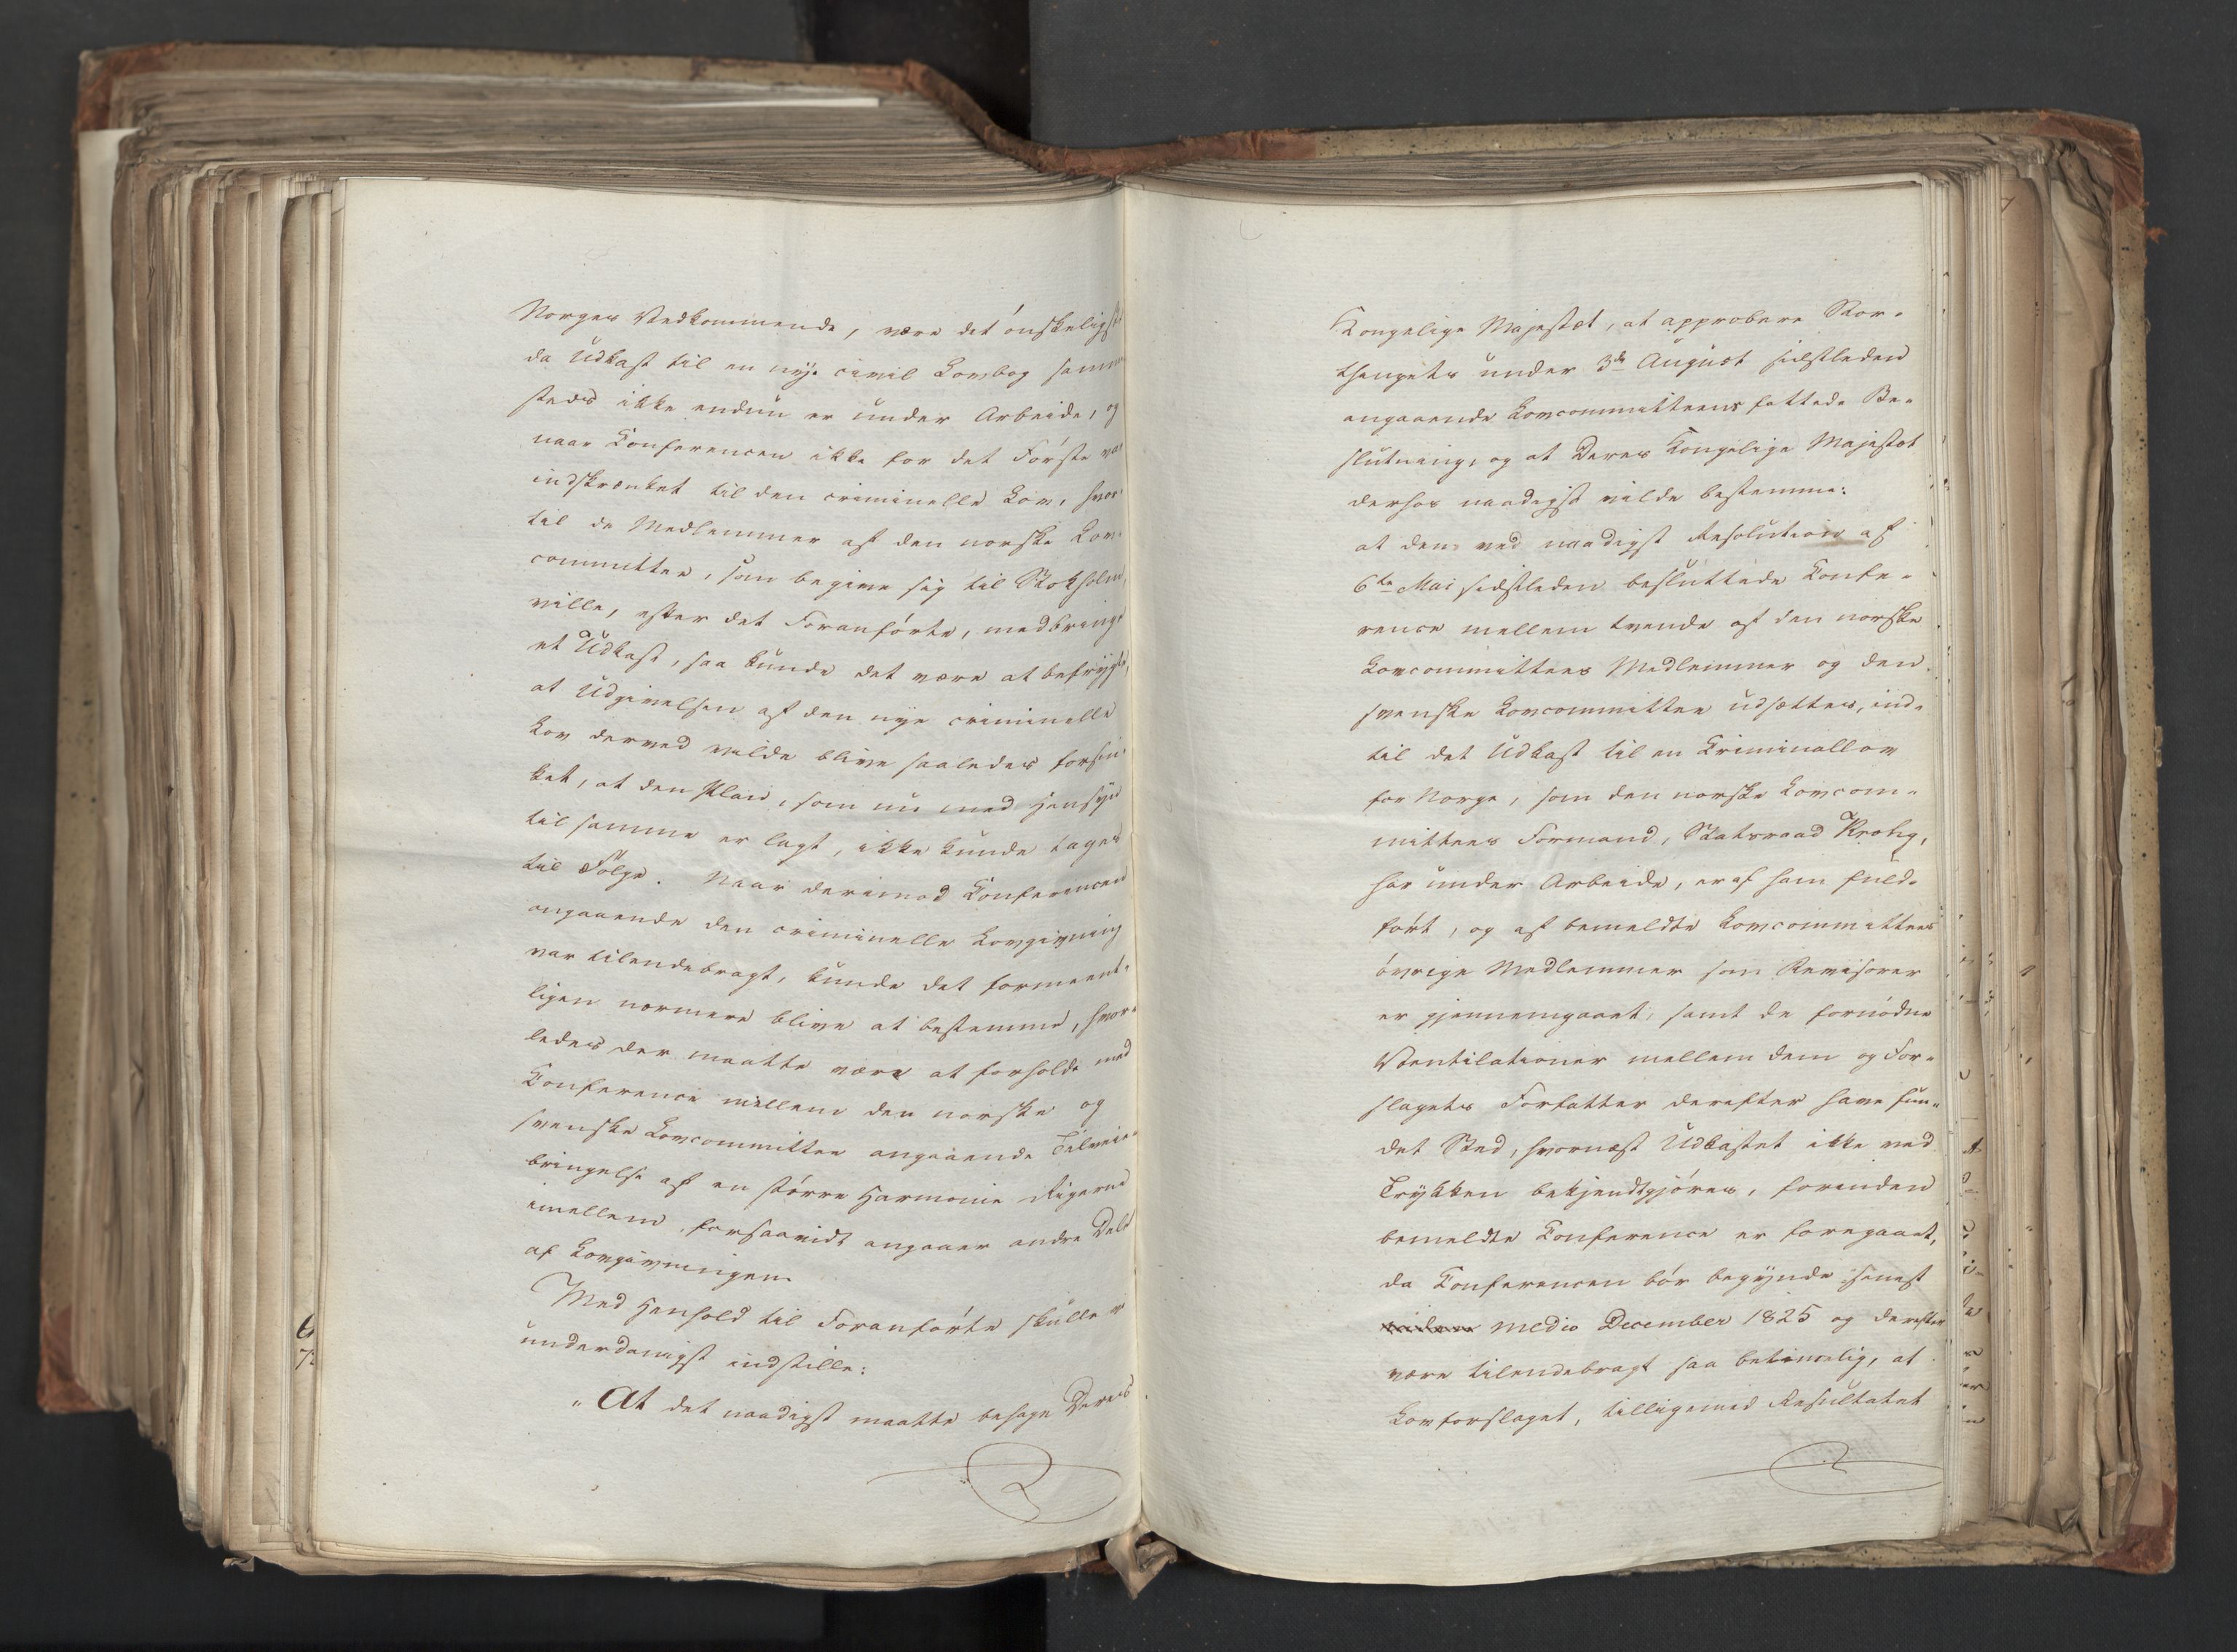 Norges Vedkommende, være det ønskeligst
da Udkast til en nye civil Lovbog samme-
steds ikke endnu er under Arbeide, og
naar Conferencen ikke for det Første var
indskrænket til den criminelle Lov, hvor-
til de Medlemmer af den norske Lov-
committee, som begive sig til Stokholm
ville, efter det Foranførte, medbringe
et Udkast, saa kunde det være at befrygte,
at Udgivelsen af den nye criminelle
Lov derved vilde blive saaledes forsin-
ket, at den Plan, som nu med Hensyn
til samme er lagt, ikke kunde tages
til Følge. Naar derimod Conferencen
angaaende den criminelle Lovgivning
var tilendebragt, kunde det formeent-
ligen nærmere blive at bestemme, hvor-
ledes der maatte være at forholde med
Conference mellem den norske og
svenske Lovcommittee angaaende Tilveie-
bringelse af en større Harmonie Rigerne
imellem, forsaavidt angaaer andre Dele
af Lovgivningen.
Med Henhold til Foranførte skulle vi
underdanigst indstille:
"At det naadigst maatte behage Deres
Kongelige Majestæt, at approbere Stor-
thingets under 3de August sidstleden
angaaende Lovcommitteens fattede Be-
slutning, og at Deres Kongelige Majestæt
derhos naadigst vilde bestemme:
at den ved naadigst Resolution af
6te Mai sidstleden besluttede Confe-
rence mellem tvende af den norske
Lovcommittees Medlemmer og den
svenske Lovcommittee udsættes, ind-
til det Udkast til en Criminallov
for Norge, som den norske Lovcom-
mittees Formand, Statsraad Krohg,
har under Arbeide, er af ham fuld-
ført, og af bemeldte Lovcommittees
øvrige Medlemmer som Revisorer
er gjennemgaaet, samt de fornødne
Ventilationer mellem dem og For-
slagets Forfatter derefter have fun-
det Sted, hvornæst Udkastet ikke ved
Trykken bekjendtgjøres, forinden
bemeldte Conference er foregaaet,
da Conferencen bør begynde senest
medio December 1825 og derefter
være tilendebragt saa betimelig, at
Lovforslaget, tilligemed Resultatet